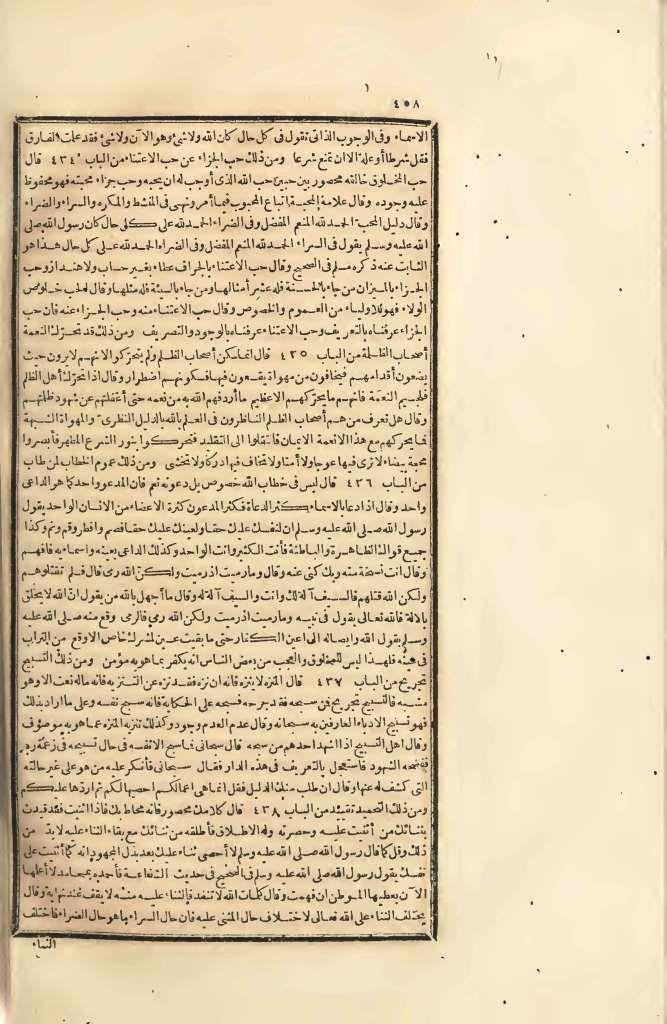 ٤٠٨
الاسماء وفى الوجوب الذاتى تقول فى كل حال كان الله ولا شئ وهو الآن ولا شئ فقد علمت الفارق
فقل شرطا أو علة الا ان تمنع شرعا ومن ذلك حب الجزاء عن حب الاعتناء من الباب ٤٣٤ قال
حب المخلوق خالقه محصور بين حبين حب الله الذى أوجب له ان يحبه وحب جزاء محبته فهو محفوظ
عليه وجوده وقال علامة المحبة اتباع المحبوب فيما أمر ونهى فى المنشط والمكره والسراء والضراء
وقال دليل المحبة الحمد لله المنعم المفضل وفى الضراء الحمد لله على كل حال كان رسول الله صلى
الله عليه وسلم يقول فى السراء الحمد لله المنعم المفضل وفى الضراء الحمد لله على كل حال هذا هو
الثابت عنه ذكره مسلم فى الصحيح وقال حب الاعتناء بالجزاف عطاء بغير حساب ولا هنداز وحب
الجزاء بالميزان من جاء بالحسنة فله عشر أمثالها ومن جاء بالسيئة فله مثلها وقال لحب خلوص
الولاء فهو للاولياء من العموم والخصوص وقال حب الاعتناء منه وحب الجزاء عنه فان حب
الجزاء عرفناه بالتعريف وحب الاعتناء عرفناه بالوجود والتصريف ومن ذلك قد تحرك النعمة
أصحاب الظلمة من الباب ٤٣٥ قال انما سكن أصحاب الظلم ولم يتحركوا الانهم لا يرون حيث
يضعون أقدامهم فيخافون من مهواة يقعون فيها فسكونهم اضطرار وقال اذا تحرك أهل الظلم
فلجسيم النعمة فانهم ما يحركهم الاعظيم ما أردفهم الله به من نعمه حتى أغفلتهم عن شهود ظلمتهم
وقال هل تعرف من هم أصحاب الظلم الناظرون فى العلم بالله بالدليل النظرى والمهواة الشبهة
فما يحركهم مع هذا الانعمة الايمان فانتقلوا الى التقليد فتحركوا بنور الشرع المطهر فأبصروا
محجة بيضاء لا ترى فيها عوجا ولا أمتا ولا تخاف فيها دركا ولا تخشى ومن ذلك عموم الخطاب لمن طاب
من الباب ٤٣٦ قال ليس فى خطاب الله خصوص بل دعوته تعم فان المدعو واحد كما هو الداعى
واحد وقال اذا دعا بالاسماء كثر الدعاة فكثر المدعون كثرة الاعضاء من الانسان الواحد يقول
رسول الله صلى الله عليه وسلم ان لنفسك عليك حقا ولعينك عليك حقا فصم وافطر وقم ونم وكذا
جميع قواك الظاهرة والباطنة فأنت الكثير وانت الواحد وكذلك الداعى بعينه واسمائه فافهم
وقال انت نسخة منه وبك كنى عنه وقال وما رميت اذ رميت ولكن الله رمى قال فلم تقتلوهم
ولكن الله قتلهم فالسيف آلة لك وانت والسيف آلة له وقال ما أجهل بالله من يقول ان الله لا يخلق
بالآلة فالله تعالى يقول فى نبيه وما رميت اذ رميت ولكن الله رمى فالرمى وقع منه صلى الله عليه
وسلم بقول الله وايصاله الى اعين الكفار حتى ما بقيت عين لمشرك خاص الا وقع من التراب
فى عينه فلهذا ليس للمخلوق والعجب من بعض الناس انه يكفر بما هو به مؤمن ومن ذلك التسبيح
تجريح من الباب ٤٣٧ قال المنزه لا ينزه فانه ان نزه فقد نزه عن التنزيه فانه ما له نعت الا وهو
مشبه فالتسبيح تجريح فمن سبحه فقد جرحه فسبحه على الحكاية فانه سبح نفسه وعلى ما اراد بذلك
فهو تسبيح الادباء العارفين به سبحانه وقال عدم العدم وجود وكذلك تنزيه المنزه عما هو به موصوف
وقال أهل التسبيح اذا اشهد احدهم من سبحه قال سبحانى فما سبح الا نفسه فى حال تسبيحه فى زعمه ربه
فيفضحه الشهود فاستعجل بالتعريف فى هذه الدار فقال سبحانى فأنكر عليه من هو على غير حالته
التى كشف له عنها وقال ان طلب منك الدليل فقل انما هى اعمالكم احصيها لكم ثم اردها عليكم
ومن ذلك التحميد تقييد من الباب ٤٣٨ قال كلامك محصور فانه محاط بك فاذا اثنيت فقد قيدت
بثنائك من أثنيت عليه وحصرته وله الاطلاق فأطلقه من ثنائك مع بقاء الثناء عليه لابد من
ذلك وقل كما قال رسول الله صلى الله عليه وسلم لا أحصى ثناء عليك بعد بذل المجهود انه كما أثنيت على
نفسك يقول رسول الله صلى الله عليه وسلم فى الصحيح فى حديث الشفاعة فأحمده بمحامد لا أعلمها
الآن يعطيها الموطن ان فهمت وقال كلمات الله لا تنفد فالثناء عليه منه لا يقف عند نهاية وقال
يختلف الثناء على الله تعالى لاختلاف حال المثنى عليه فان حال السراء ما هو حال الضراء فاختلف
الثناء